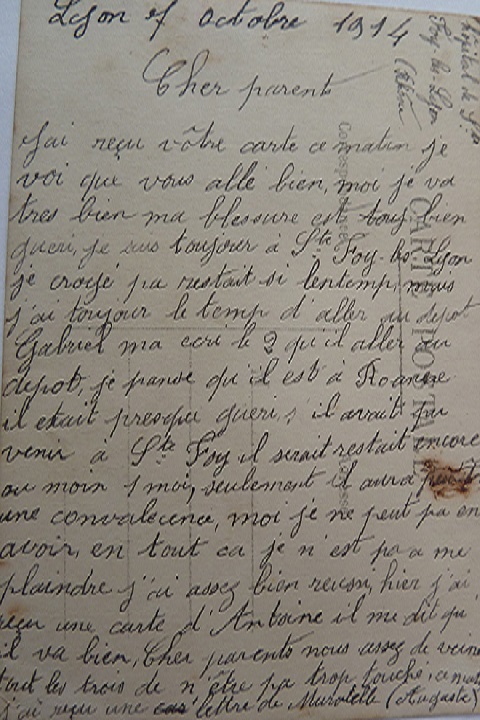 Lyon octobre 1914
Cher parent
J'ai reçu vôtre carte ce matin je
voi que vous allé bien, moi je va
tres bien ma blessure est bien
gueri, je suis toujour à Ste Foy-les-Lyon
je croyé pa restait si lentemp, mais
j'ai toujour le temp d'aller au depot
Gabriel ma ecri le 2 qu'il aller au
depot, je panse qu'il est à Roanne
il etait presque gueri, s'il avait pu
venir à Ste Foy il serait restait encore
au moin 1 moi, seulement il aura
une convalecence, moi je ne peut pa en
avoir, en tout ca je n'est pa a me
plaindre j'ai assez bien reussi, hier j'ai
reçu une carte d'Antoine il me dit qu'
il va bien, Cher parents nous assez de veine
tout les trois de n'être pa trop touché
j'ai reçu une lettre de (Auguste)
hôpital de Ste
Foy-les-Lyon
(Rhône
CARTE POSTALE
Correspondance